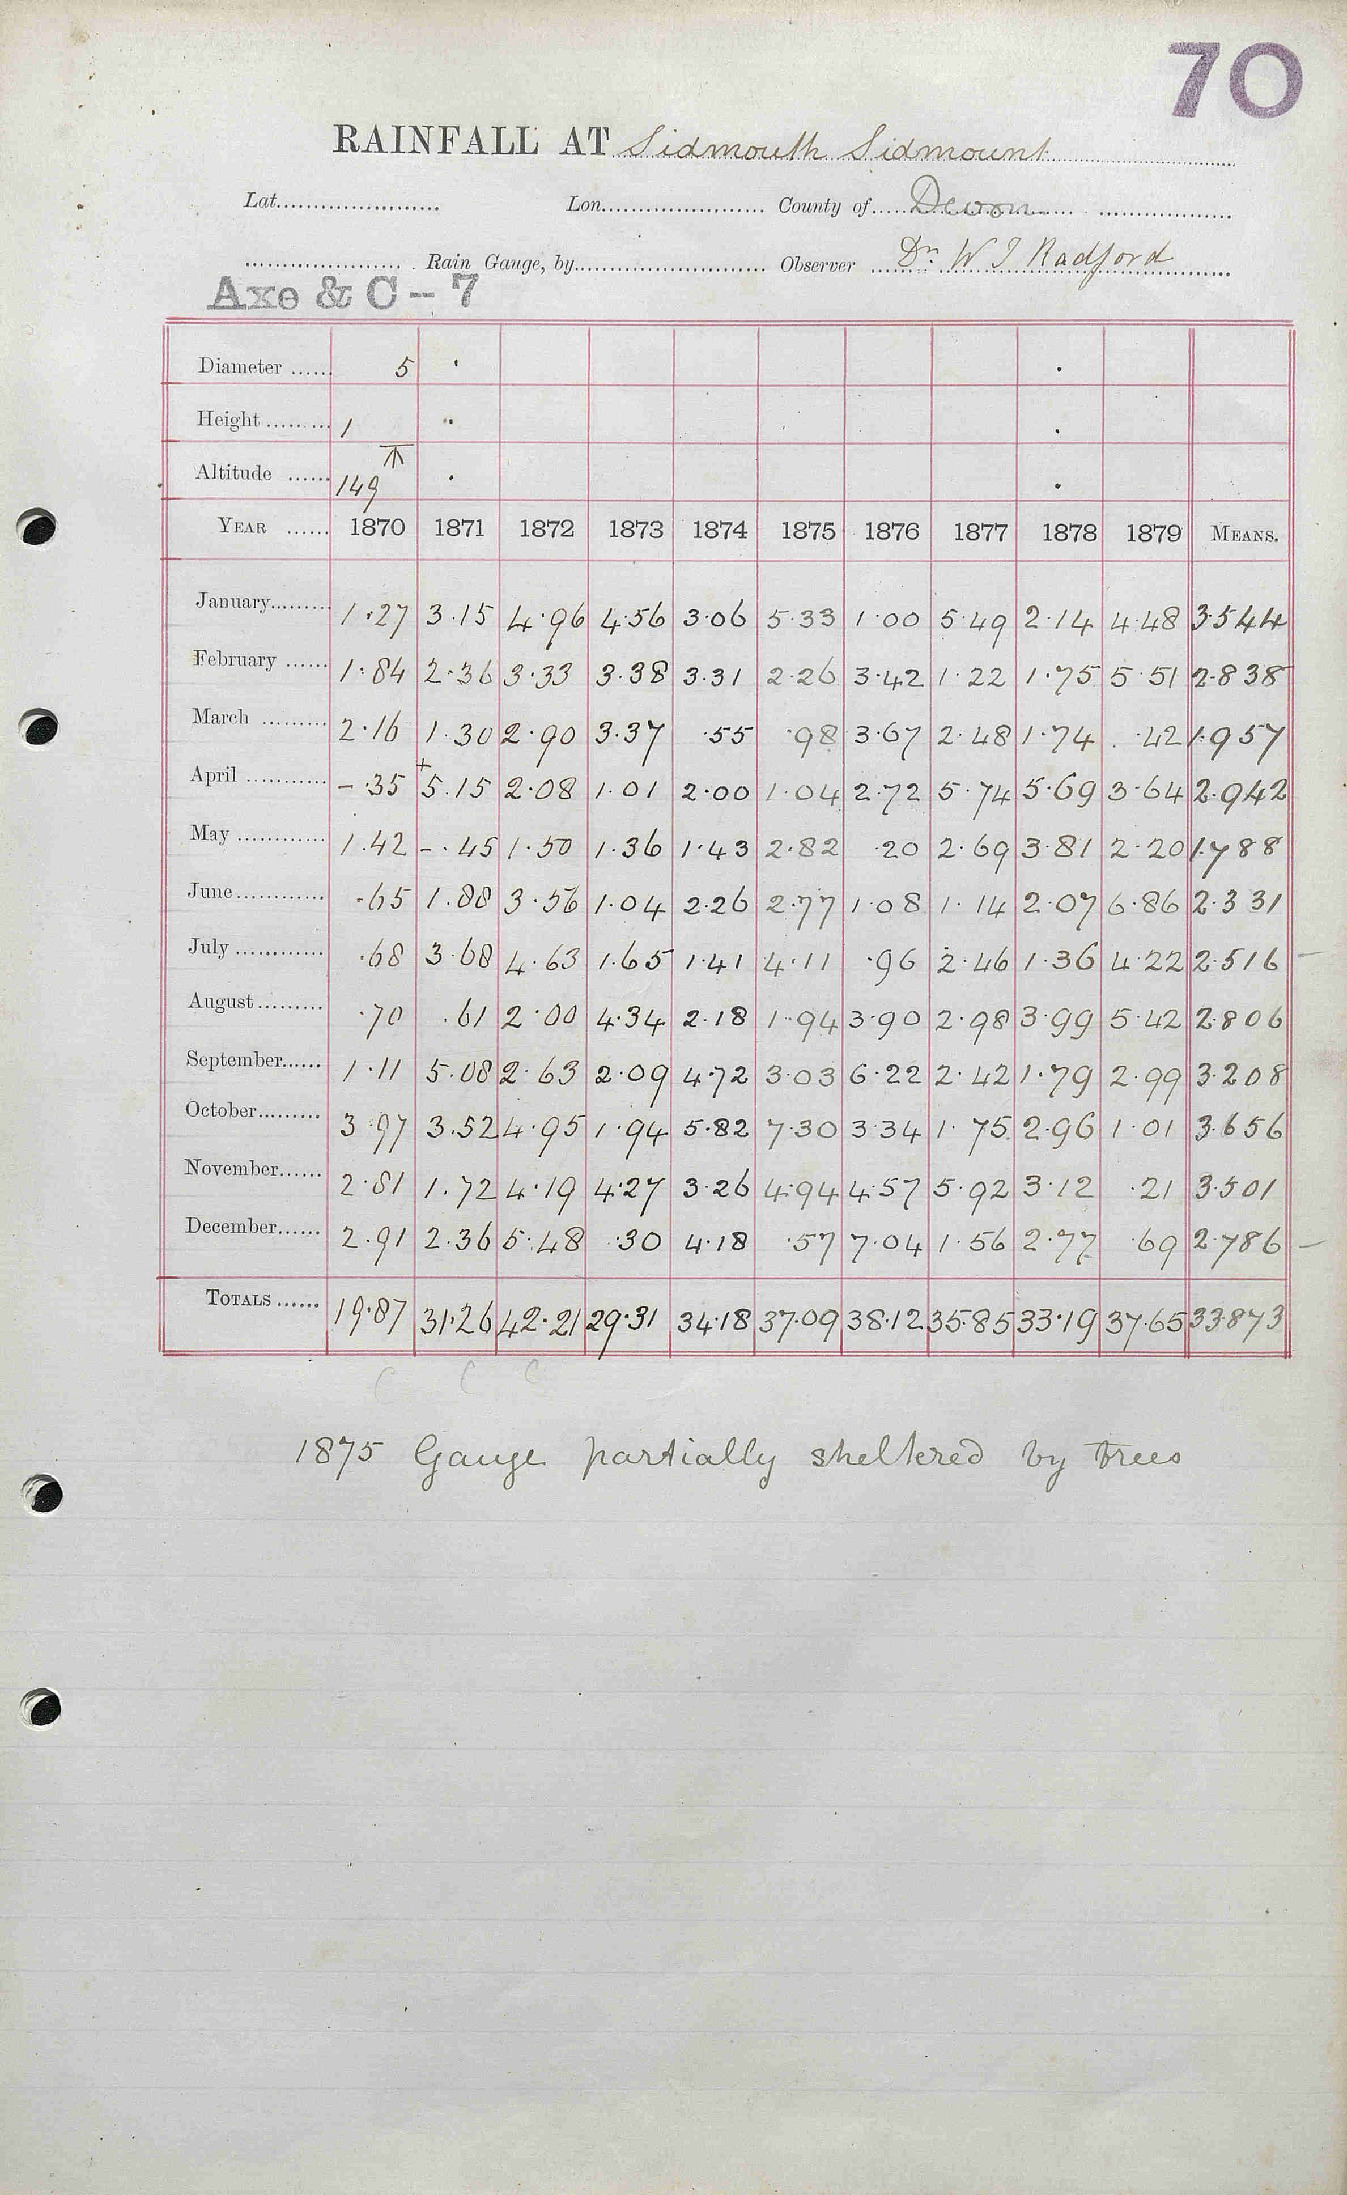 70
RAINFALL AT Sidmouth Sidmount
Lat. Lon. County of Devon
Rain Gauge, by Observer Dr. W J Radford
Axe & C – 7
Diameter 5
Height 1
Altitude 149
YEAR 1870 1871 1872 1873 1874 1875 1876 1877 1878 1879 MEANS.
January 1.27 3.15 4.96 4.56 3.06 5.33 1.00 5.49 2.14 4.48 3.544
February 1.84 2.36 3.33 3.38 3.31 2.26 3.42 1.22 1.75 5.51 2.838
March 2.16 1.30 2.90 3.37 .55 .98 3.67 2.48 1.74 .42 1.957
April – .35 +5.15 2.08 1.01 2.00 1.04 2.72 5.74 5.69 3.64 2.942
May 1.42 – .45 1.50 1.36 1.43 2.82 .20 2.69 3.81 2.20 1.788
June .65 1.88 3.56 1.04 2.26 2.77 1.08 1.14 2.07 6.86 2.331
July .68 3.68 4.63 1.65 1.41 4.11 .96 2.46 1.36 4.22 2.516
August .70 .61 2.00 4.34 2.18 1.94 3.90 2.98 3.99 5.42 2.806
September 1.11 5.08 2.63 2.09 4.72 3.03 6.22 2.42 1.79 2.99 3.208
October 3.97 3.52 4.95 1.94 5.82 7.30 3.34 1.75 2.96 1.01 3.656
November 2.81 1.72 4.19 4.27 3.26 4.94 4.57 5.92 3.12 .21 3.501
December 2.91 2.36 5.48 .30 4.18 .57 7.04 1.56 2.77 .69 2.786
TOTALS 19.87 31.26 42.21 29.31 34.18 37.09 38.12 35.85 33.19 37.65 33.873
C C C
1875 Gauge partially sheltered by trees